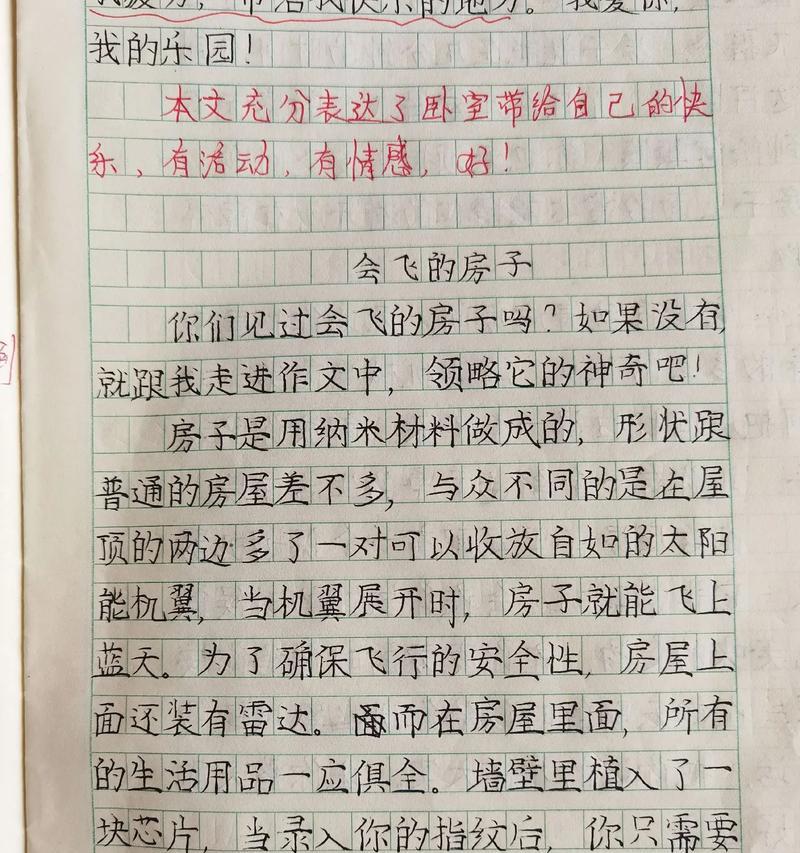 我疲劳，带给我快乐的地方。我爱你，
我的乐园！
本文充分表达了卧室带给自己的快
乐，有活动，有情感，好！
会飞的房子
你们见过会飞的房子吗？如果没有，
就跟我走进作文中，领略它的神奇吧！
房子是用纳米材料做成的，形状跟
普通的房屋差不多，与众不同的是在屋
顶的两边多了一对可以收放自如的太阳
能机翼，当机翼展开时，房子就能飞上
蓝天。为了确保飞行的安全性，房屋上
面还装有雷达。而在房屋里面，所有
的生活用品一应俱全。墙壁里植入了一
块芯片，当录入你的指纹后，你只需要